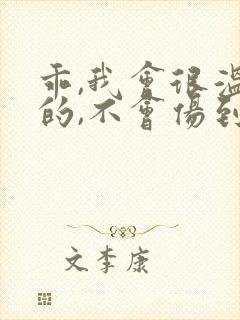 乖,我會很溫
的,不會傷到
文李康